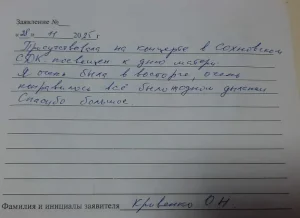 Заявление №
«28» 11 2025 г
Присутствовала на концерте в Сохновском
СДК посвещен к дню матери.
Я очень была в восторге, очень
понравилось всё было
Спасибо большое
Фамилия и инициалы заявителя Кривенко О Н